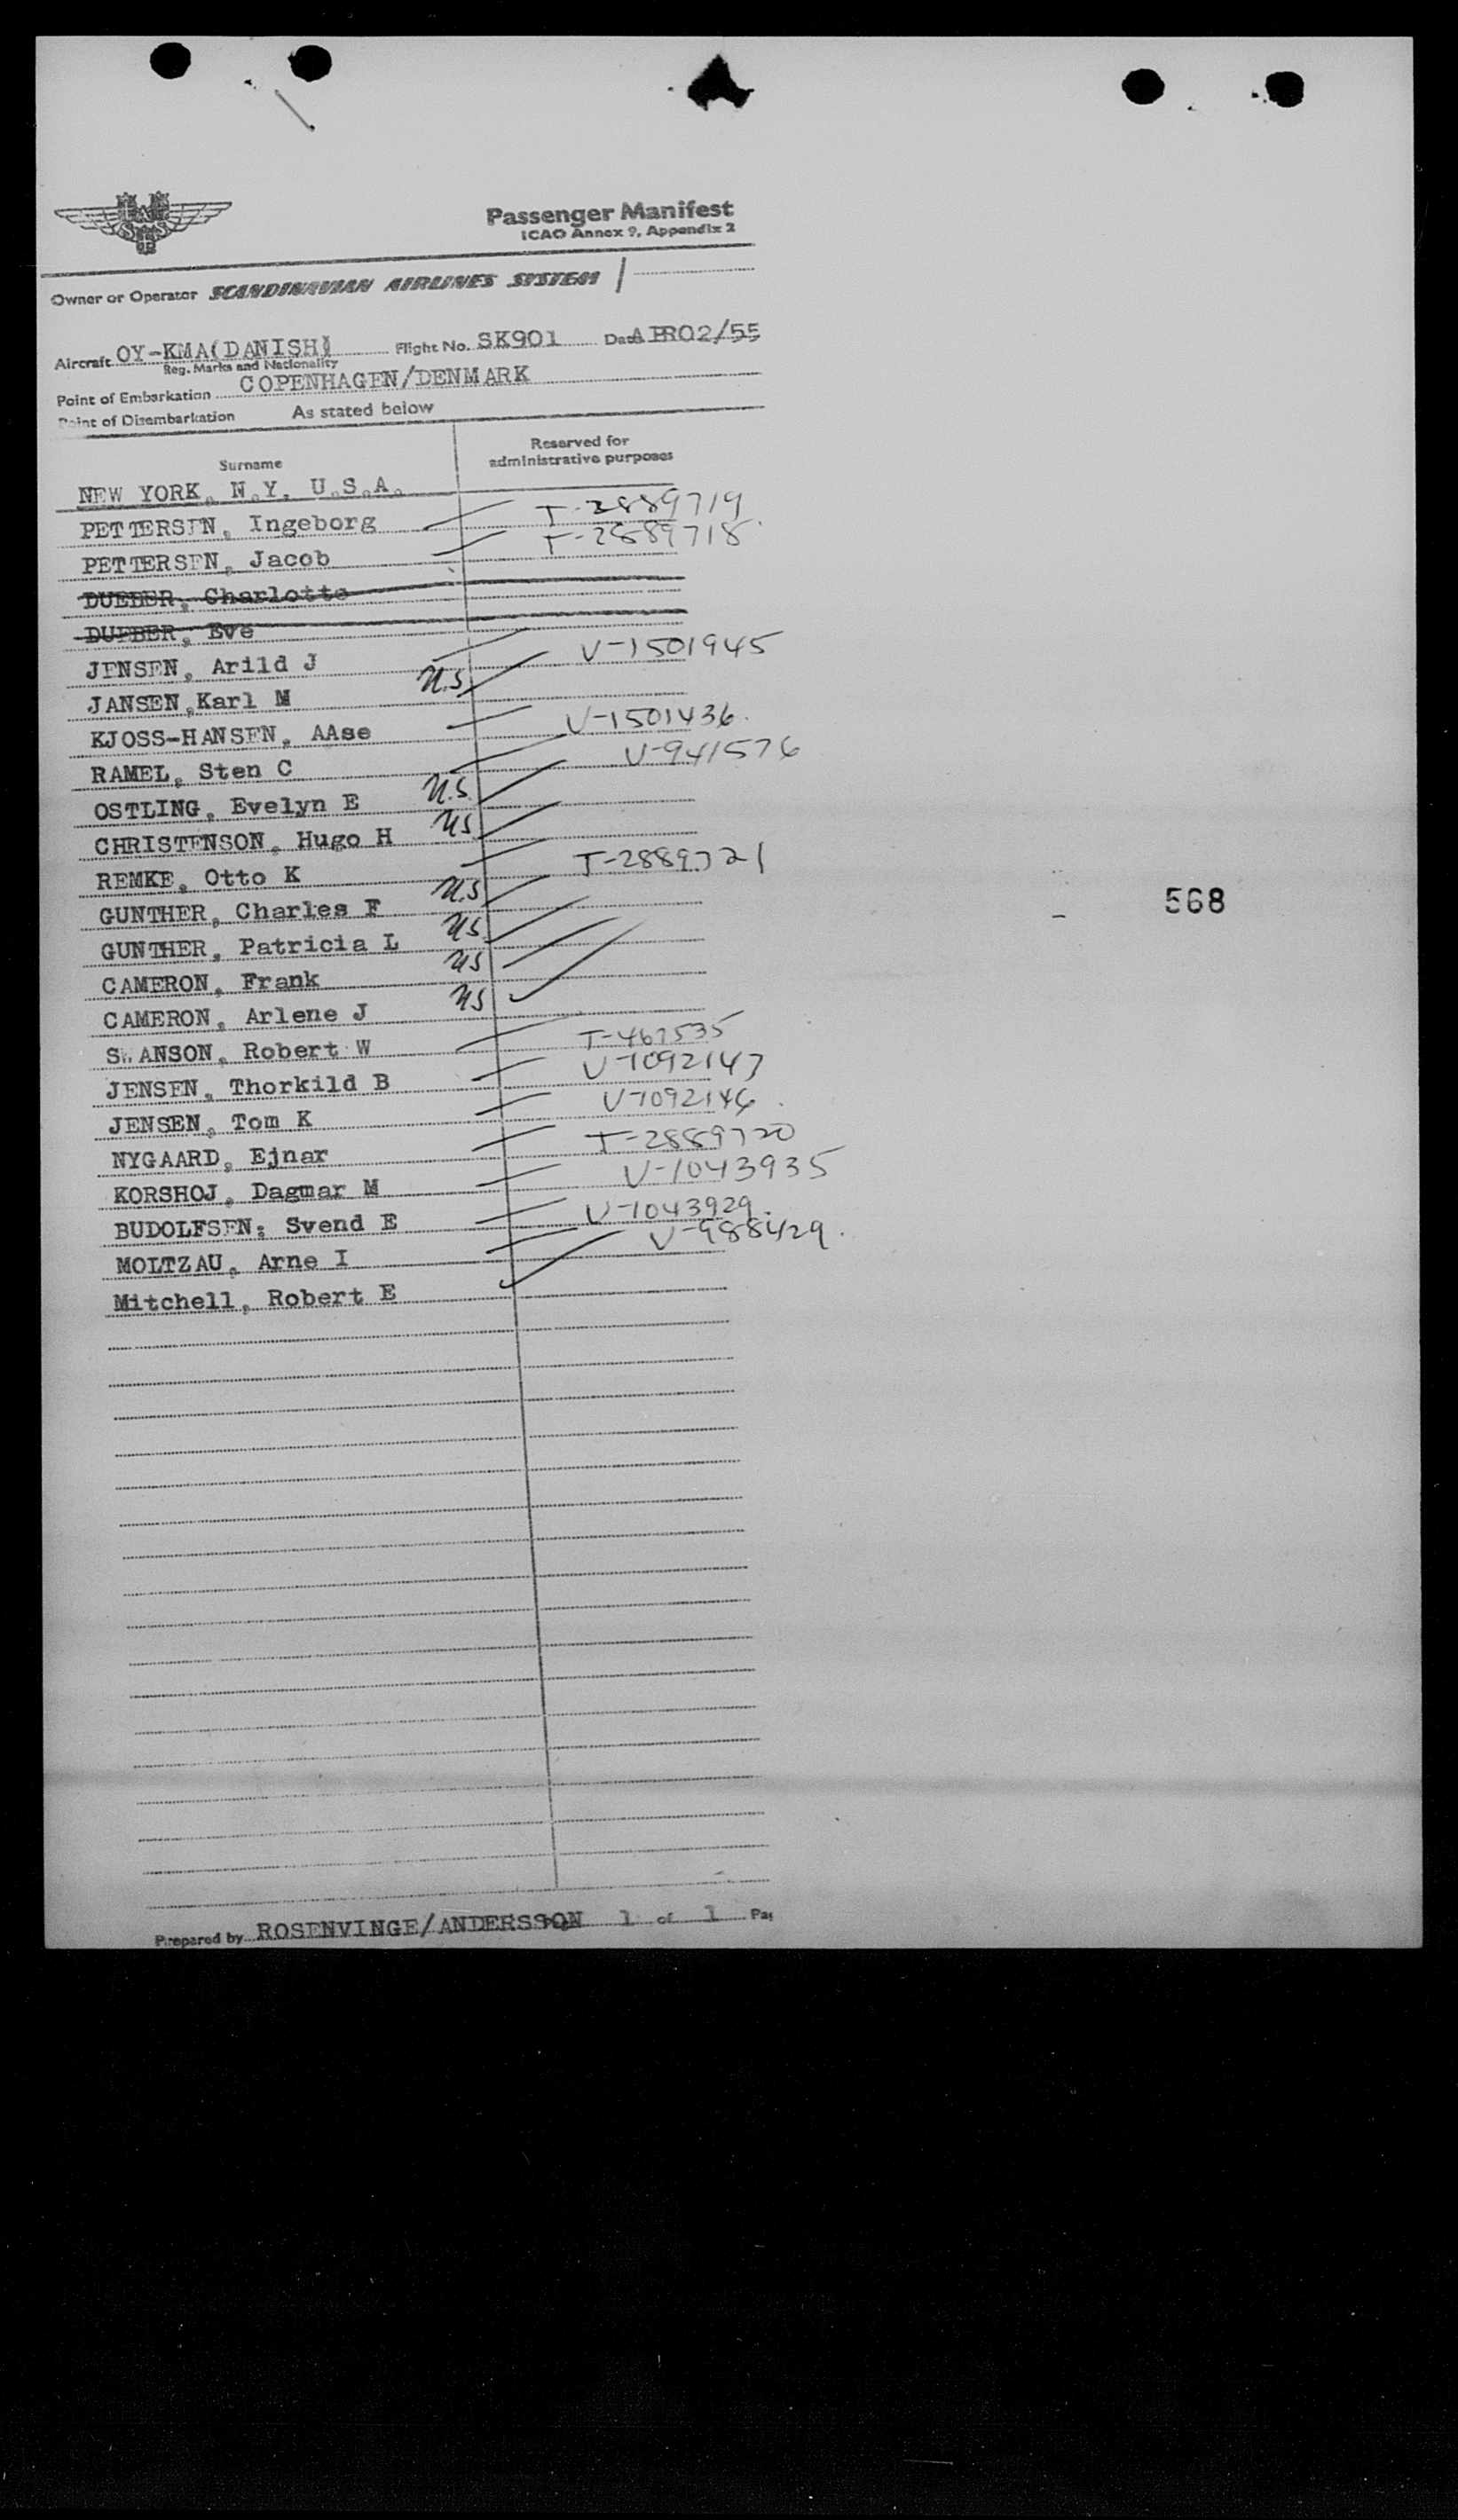 Passenger Manifest
ICAO Annex 9, Appendix 2
Owner or Operator SCANDINAVIAN AIRLINES SYSTEM
Aircraft OY-KMA(DANISH) Flight No. SK901 Date APR02/55
Reg. Marks and Nationality
Point of Embarkation COPENHAGEN/DENMARK
Point of Disembarkation As stated below
Surname Reserved for administrative purposes
NEW YORK, N.Y. U.S.A.
PETTERSEN, Ingeborg T-2889719
PETTERSEN, Jacob T-2889718
DUEBER, Charlotte
DUEBER, Eve
JENSEN, Arild J V-1501945
JANSEN,Karl M U.S.
KJOSS-HANSEN, AAse V-1501436.
RAMEL, Sten C V-941576
OSTLING, Evelyn E U.S.
CHRISTENSON, Hugo H US
REMKE, Otto K T-2889721
GUNTHER, Charles F U.S
GUNTHER, Patricia L US
CAMERON, Frank US
CAMERON, Arlene J US
SWANSON, Robert W T-467535
JENSEN, Thorkild B V-1092147
JENSEN, Tom K V-1092146
NYGAARD, Ejnar T-2889720
KORSHOJ, Dagmar M V-1043935
BUDOLFSEN, Svend E V-1043929.
MOLTZAU, Arne I V-988429.
Mitchell, Robert E
568
Prepared by ROSENVINGE/ANDERSSON 1 of 1 Pag